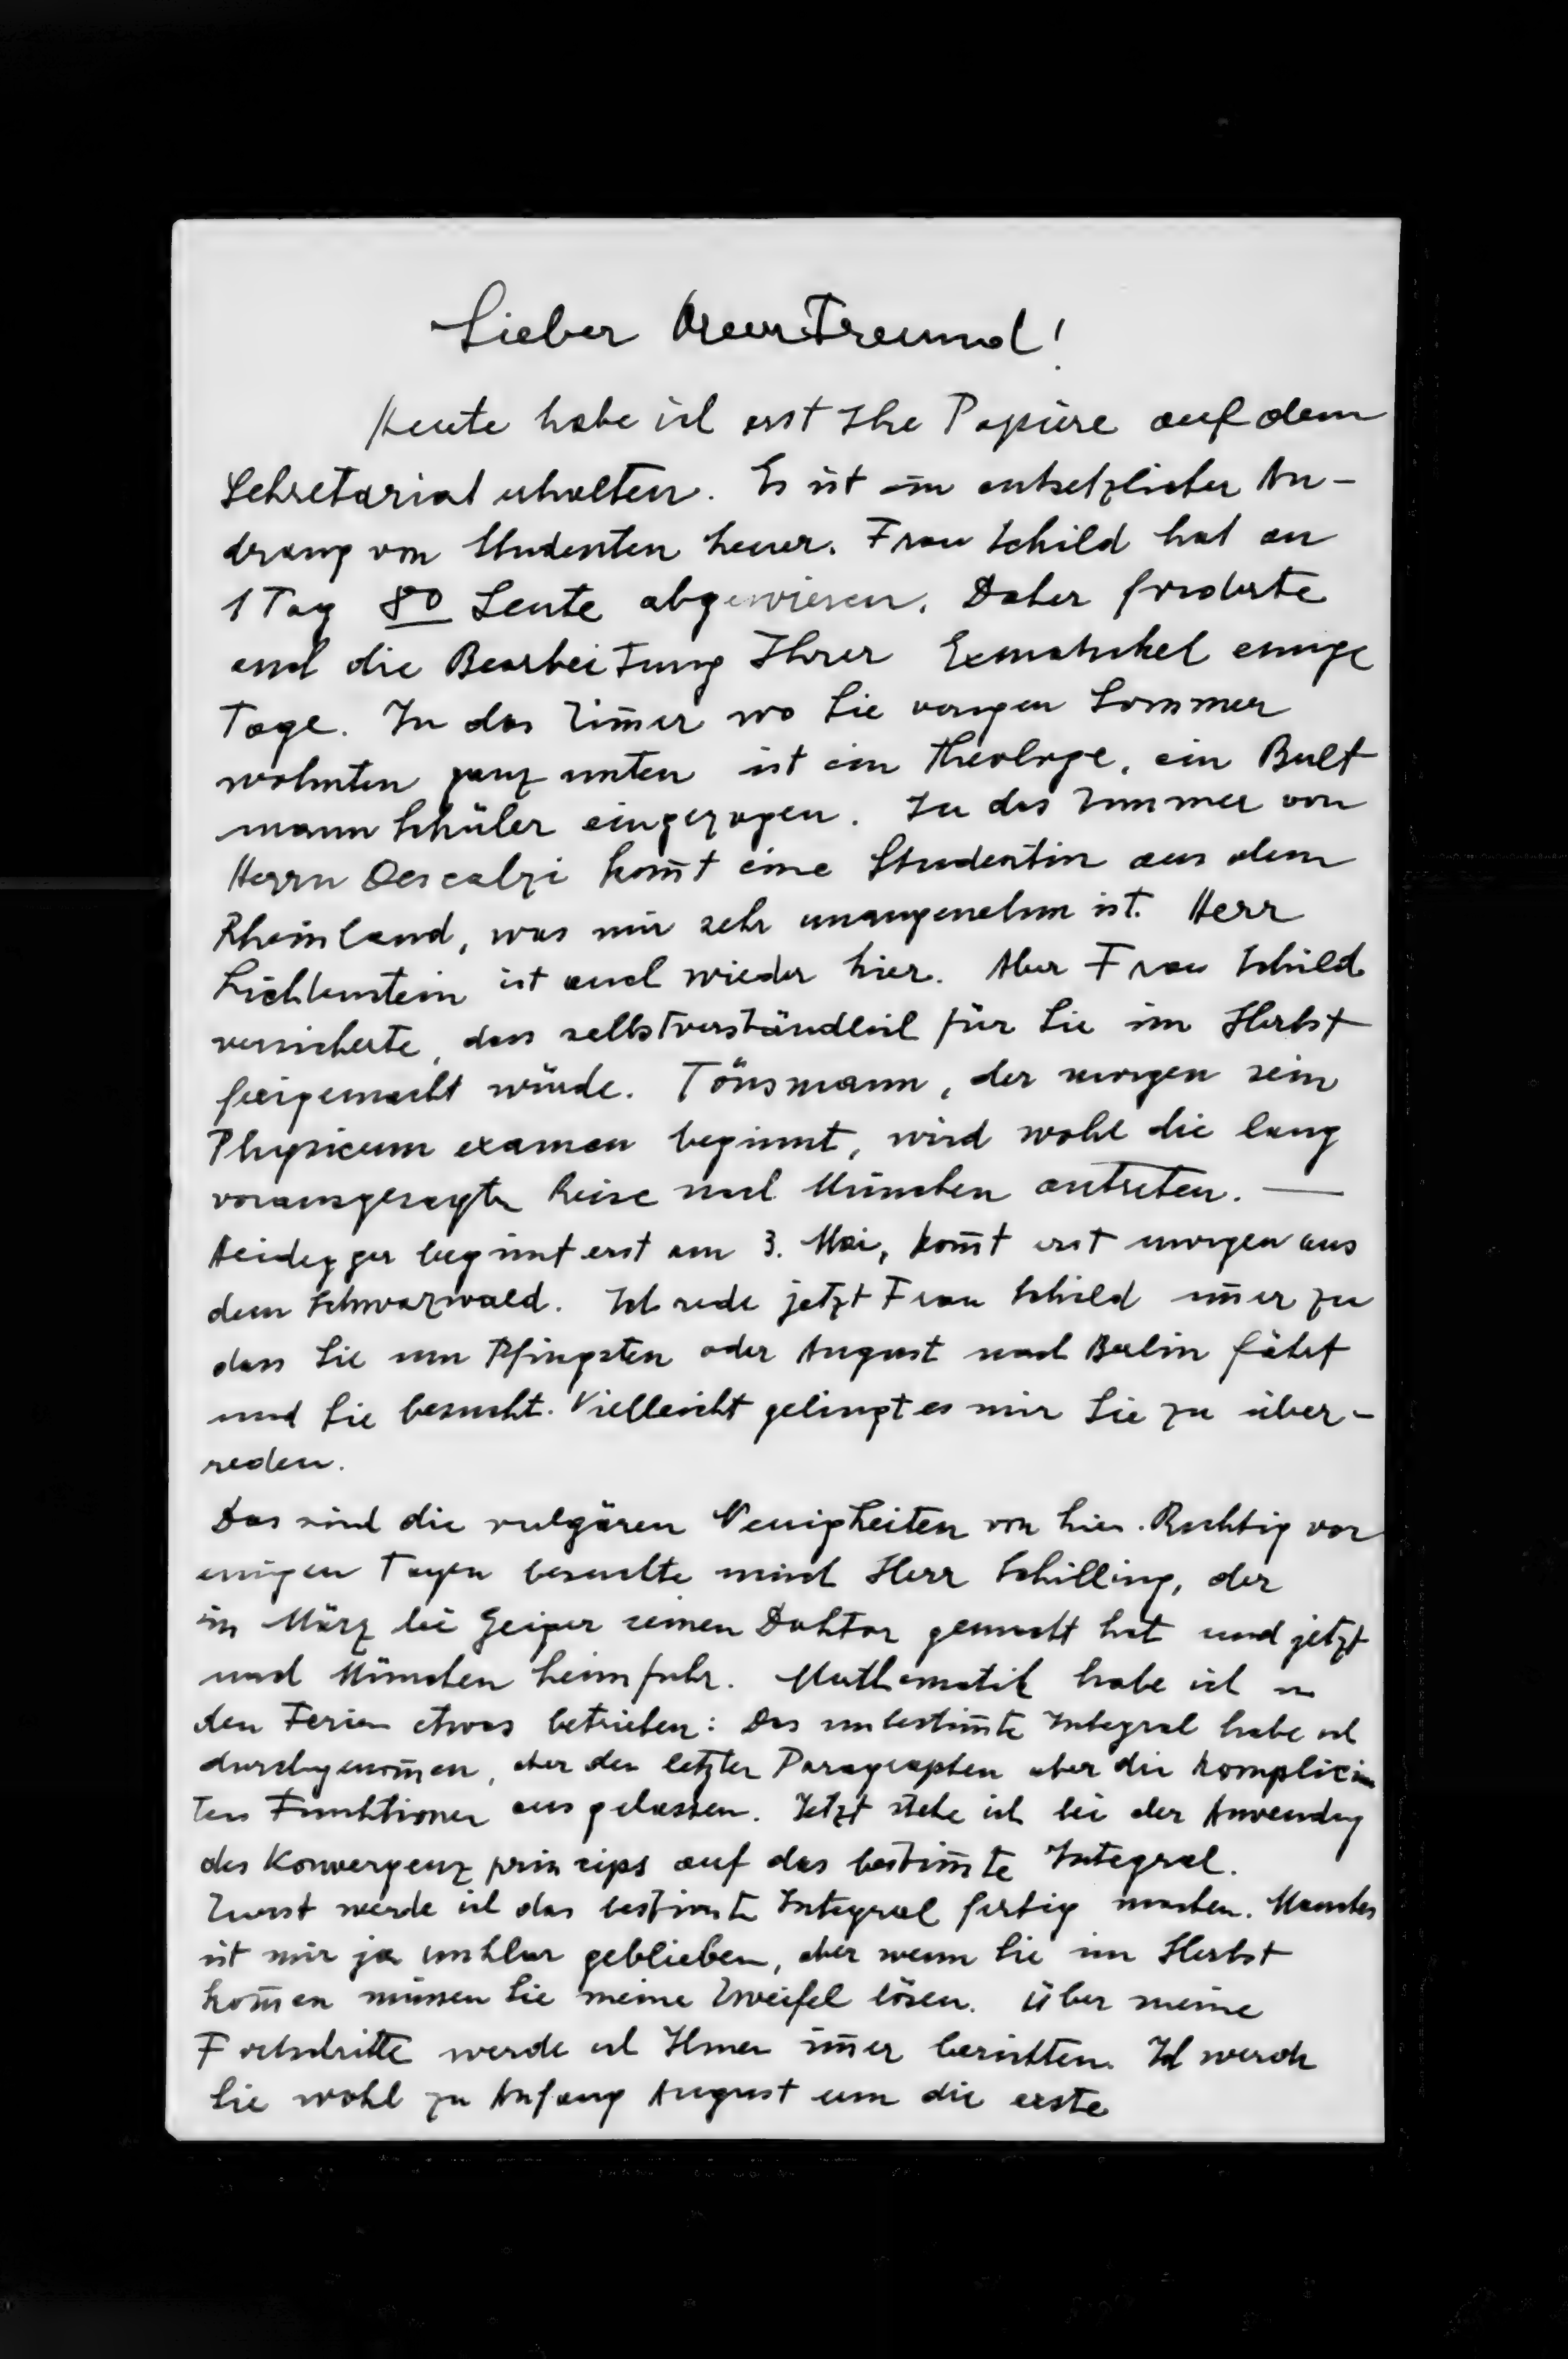 Lieber Freund!
Heute habe ich erst Ihre Papiere auf dem
Sekretariat erhalten. Es ist ein entsetzlicher An-
drang von Studenten heuer. Frau Schild hat an
1 Tag 80 Leute abgewiesen. Daher forderte
auch die Bearbeitung Ihrer Exmatrikel einige
Tage. In das Zim̄er wo Sie vorigen Sommer
wohnten ganz unten ist ein Theologe, ein Bult
mann Schüler eingezogen. In das Zimmer von
Herrn Descalzi kom̄t eine Studentin aus dem
Rheinland, was mir sehr unangenehm ist. Herr
Lichtenstein ist auch wieder hier. Aber Frau Schild
versicherte, dass selbstverständlich für Sie im Herbst
freigemacht würde. Tönsmann, der morgen sein
Physicum examen beginnt, wird wohl die lang
vorausgesagte Reise nach München antreten. —
Heidegger beginnt erst am 3. Mai, kom̄t erst morgen aus
dem Schwarzwald. Ich rede jetzt Frau Schild im̄er zu
dass Sie um Pfingsten oder August nach Berlin fährt
und Sie besucht. Vielleicht gelingt es mir Sie zu über-
reden.
Das sind die vulgären Neuigkeiten von hier. Richtig vor
einigen Tagen besuchte mich Herr Schilling, der
im März bei Geiger seinen Doktor gemacht hat und jetzt
nach München heimfuhr. Mathematik habe ich in
den Ferien etwas betrieben: Das unbestim̄te Integral habe ich
durchgenom̄en, aber den letzten Paragraphen über die komplicier
ten Funktionen ausgelassen. Jetzt stehe ich bei der Anwendung
des Konvergenz princips auf das bestim̄te Integral.
Zuerst werde ich das bestimmte Integral fertig machen. Manches
ist mir ja unklar geblieben, aber wenn Sie im Herbst
kom̄en müssen Sie meine Zweifel lösen. Über meine
Fortschritte werde ich Ihnen im̄er berichten. Ich werde
Sie wohl zu Anfang August um die erste